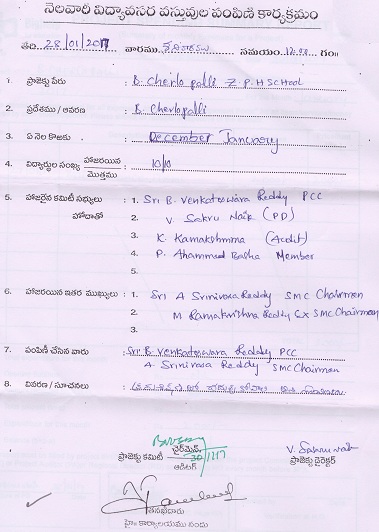 నెలవారీ విద్యావసర వస్తువుల పంపిణి కార్యక్రమం
తేది 28/01/2017 వారము శనివారము సమయం 12.00 గం॥
1. ప్రాజెక్టు పేరు : B. Cherlopalli Z P.H School
2. ప్రదేశము / ఆవరణ : B. Cherlopalli
3. ఏ నెల కొఱకు : December January
4. విద్యార్థుల సంఖ్య హాజరయిన / మొత్తము : 10/10
5. హాజరైన కమిటీ సభ్యులు : 1. Sri B. Venkateswara Reddy PCC
హోదాతో 2. V. Sakru Naik (PD)
3. K. Kamakshmma (Acdit)
4. P. Ahammed Basha Member
5.
6. హాజరయిన ఇతర ముఖ్యులు : 1. Sri A Srinivasa Reddy SMC Chairmen
2. M Ramakrishna Reddy Ex SMC Chairmen
3.
7. పంపిణీ చేసిన వారు : Sri B Venkateswara Reddy PCC
A Srinivasa Reddy SMC Chairman
8. వివరణ / సూచనలు :
ప్రాజెక్టు కమిటీ ఛైర్మెన్ 30/1/17
ఆడిటర్
V. Sakru naik
ప్రాజెక్టు డైరెక్టర్